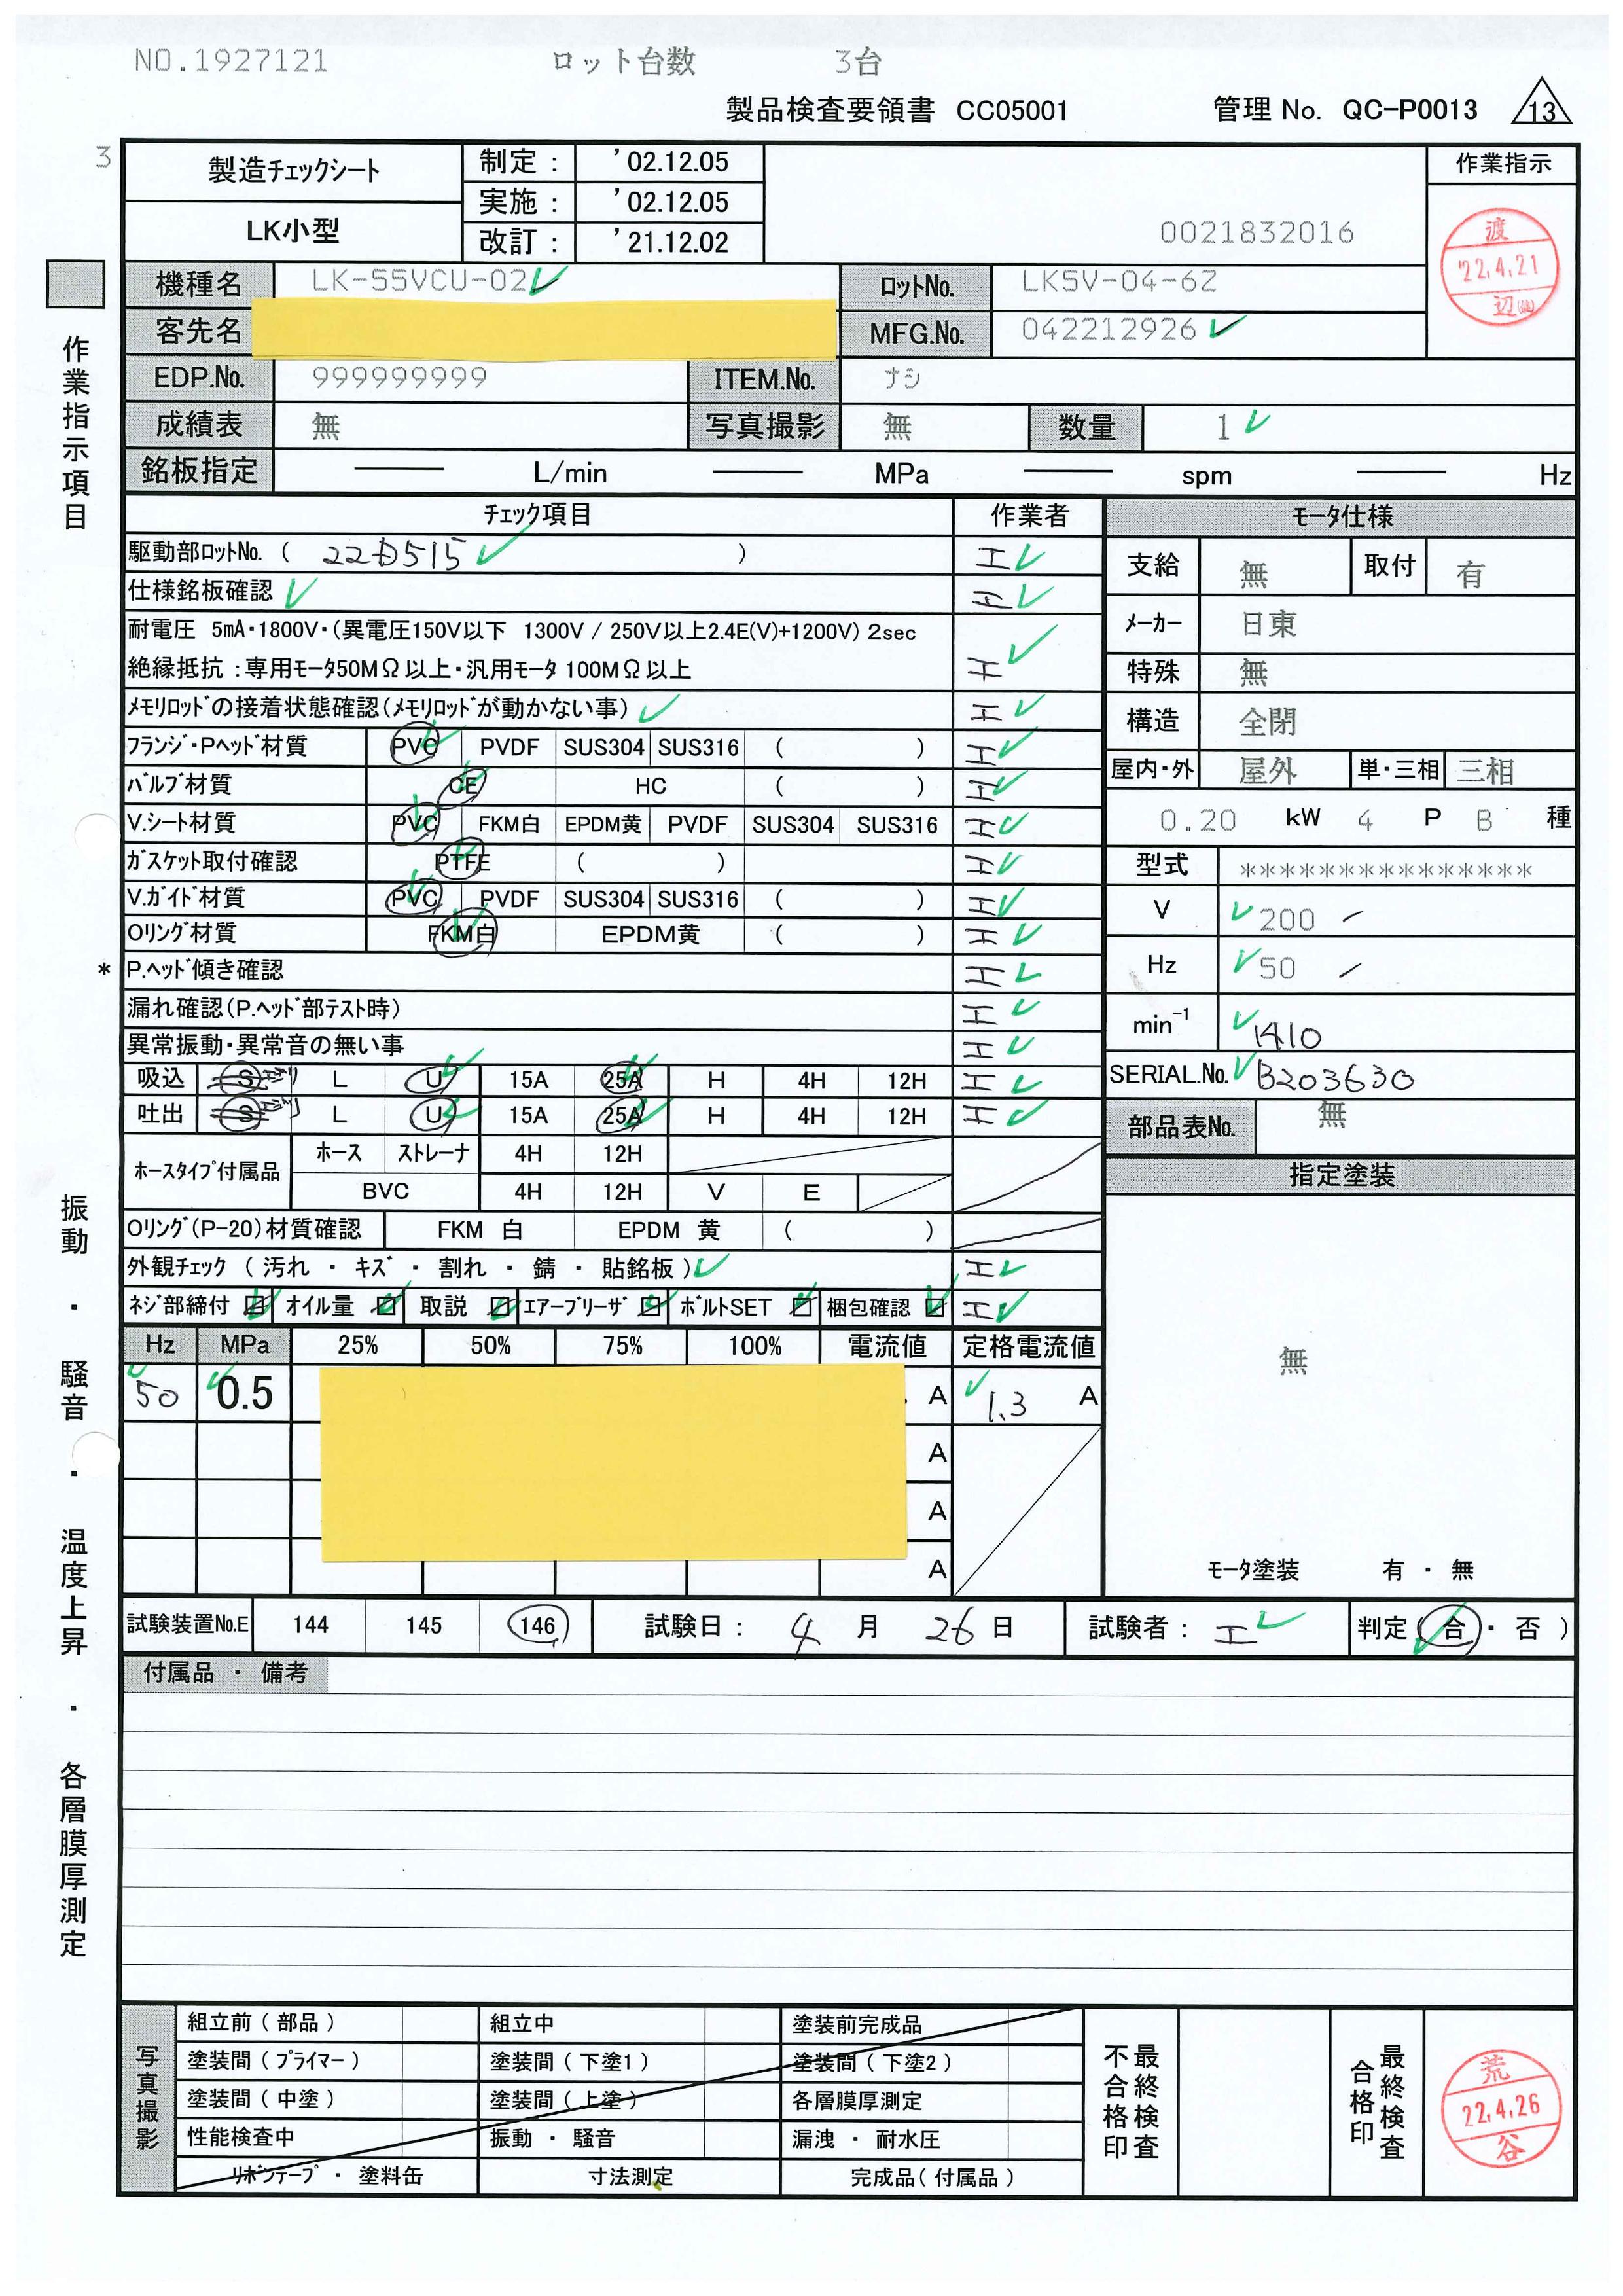 NO.1927121 ロット台数 3台
製品検査要領書 CC05001 管理 No. QC-P0013 13
3
製造チェックシート 制定 : '02.12.05 作業指示
LK小型 実施 : '02.12.05
改訂 : '21.12.02 0021832016
渡
'22.4.21
辺
機種名 LK-S5VCU-02 ロットNo. LKSV-04-62
客先名 MFG.No. 042212926
EDP.No. 999999999 ITEM.No. ナシ
成績表 無 写真撮影 無 数量 1
銘板指定 L/min MPa spm Hz
作業指示項目
チェック項目 作業者 モータ仕様
駆動部ロットNo. ( 22D515 ) エ
仕様銘板確認 エ
耐電圧 5mA・1800V・(異電圧150V以下 1300V / 250V以上2.4E(V)+1200V) 2sec
絶縁抵抗 : 専用モータ50MΩ以上・汎用モータ 100MΩ以上 エ
メモリロッドの接着状態確認(メモリロッドが動かない事) エ
フランジ・Pヘッド材質 PVC PVDF SUS304 SUS316 ( ) エ
バルブ材質 CE HC ( ) エ
V.シート材質 PVC FKM白 EPDM黄 PVDF SUS304 SUS316 エ
ガスケット取付確認 PTFE ( ) エ
V.ガイド材質 PVC PVDF SUS304 SUS316 ( ) エ
Oリング材質 FKM白 EPDM黄 ( ) エ
* P.ヘッド傾き確認 エ
漏れ確認(P.ヘッド部テスト時) エ
異常振動・異常音の無い事 エ
吸込 S L U 15A 25A H 4H 12H エ
吐出 S L U 15A 25A H 4H 12H エ
ホースタイプ付属品 ホース ストレーナ 4H 12H
BVC 4H 12H V E
Oリング(P-20)材質確認 FKM 白 EPDM 黄 ( )
外観チェック ( 汚れ ・ キズ ・ 割れ ・ 錆 ・ 貼銘板 ) エ
ネジ部締付 オイル量 取説 エアーブリーザ ボルトSET 梱包確認 エ
支給 無 取付 有
メーカー 日東
特殊 無
構造 全閉
屋内・外 屋外 単・三相 三相
0.20 kW 4 P B 種
型式 ***************
V 200 -
Hz 50 -
min-1 1410
SERIAL.No. B203630
部品表No. 無
指定塗装
無
モータ塗装 有 ・ 無
Hz MPa 25% 50% 75% 100% 電流値 定格電流値
50 0.5 A 1.3 A
A
A
A
振動 ・ 騒音 ・ 温度上昇 ・ 各層膜厚測定
試験装置No.E 144 145 146 試験日 : 4 月 26 日 試験者 : エ 判定 ( 合 ・ 否 )
付属品 ・ 備考
写真撮影
組立前 ( 部品 ) 組立中 塗装前完成品
塗装間 ( プライマー ) 塗装間 ( 下塗1 ) 塗装間 ( 下塗2 )
塗装間 ( 中塗 ) 塗装間 ( 上塗 ) 各層膜厚測定
性能検査中 振動 ・ 騒音 漏洩 ・ 耐水圧
リボンテープ ・ 塗料缶 寸法測定 完成品( 付属品 )
最終検査不合格印
最終検査合格印
荒
22.4.26
谷